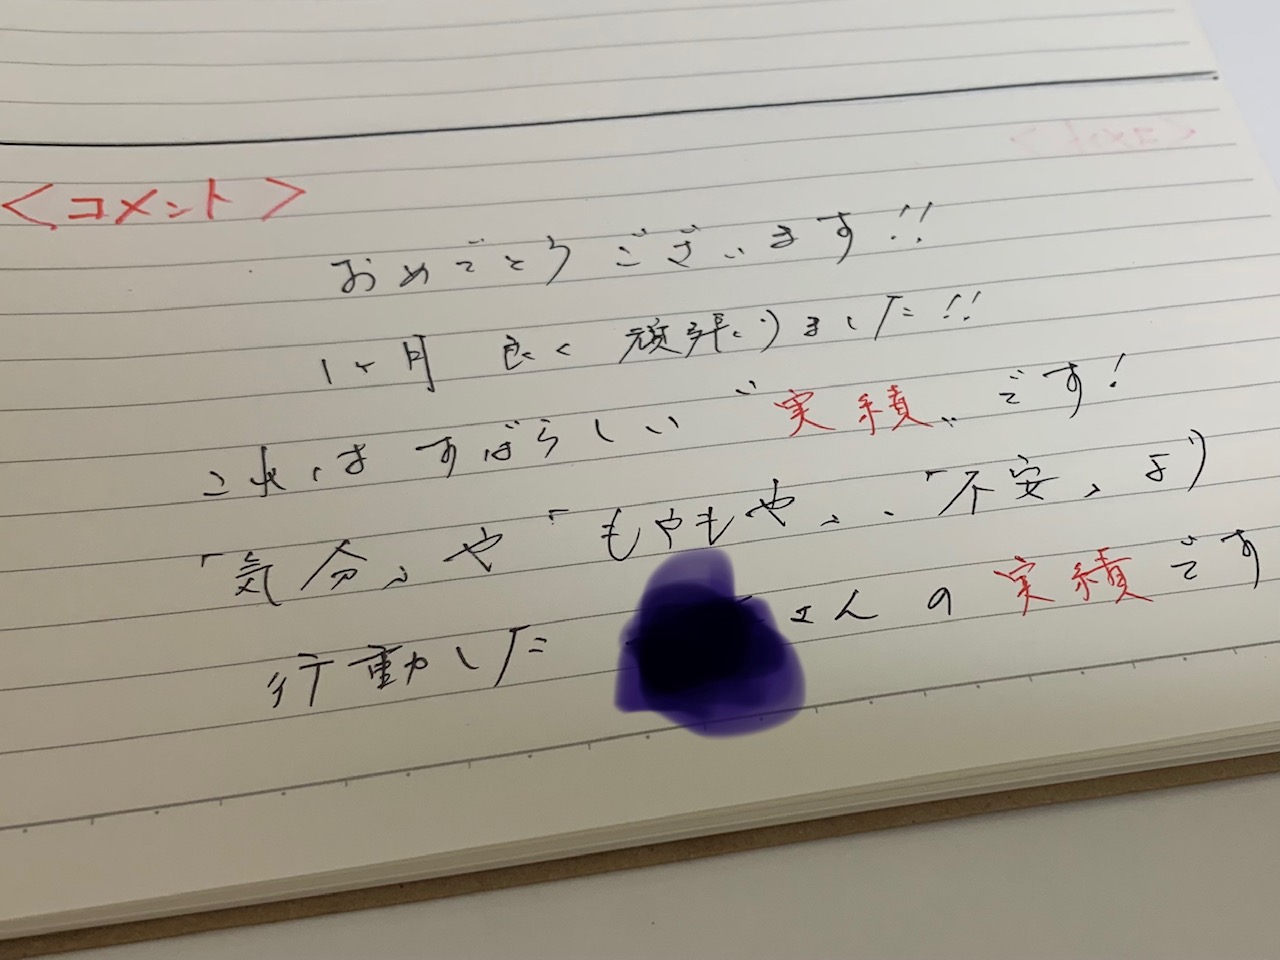 <コメント>
おめでとうございます!!
1ヶ月 良く 頑張りました!!
これは すばらしい "実績" です!
「気分」や「もやもや」、「不安」より
行動した さんの 実績です